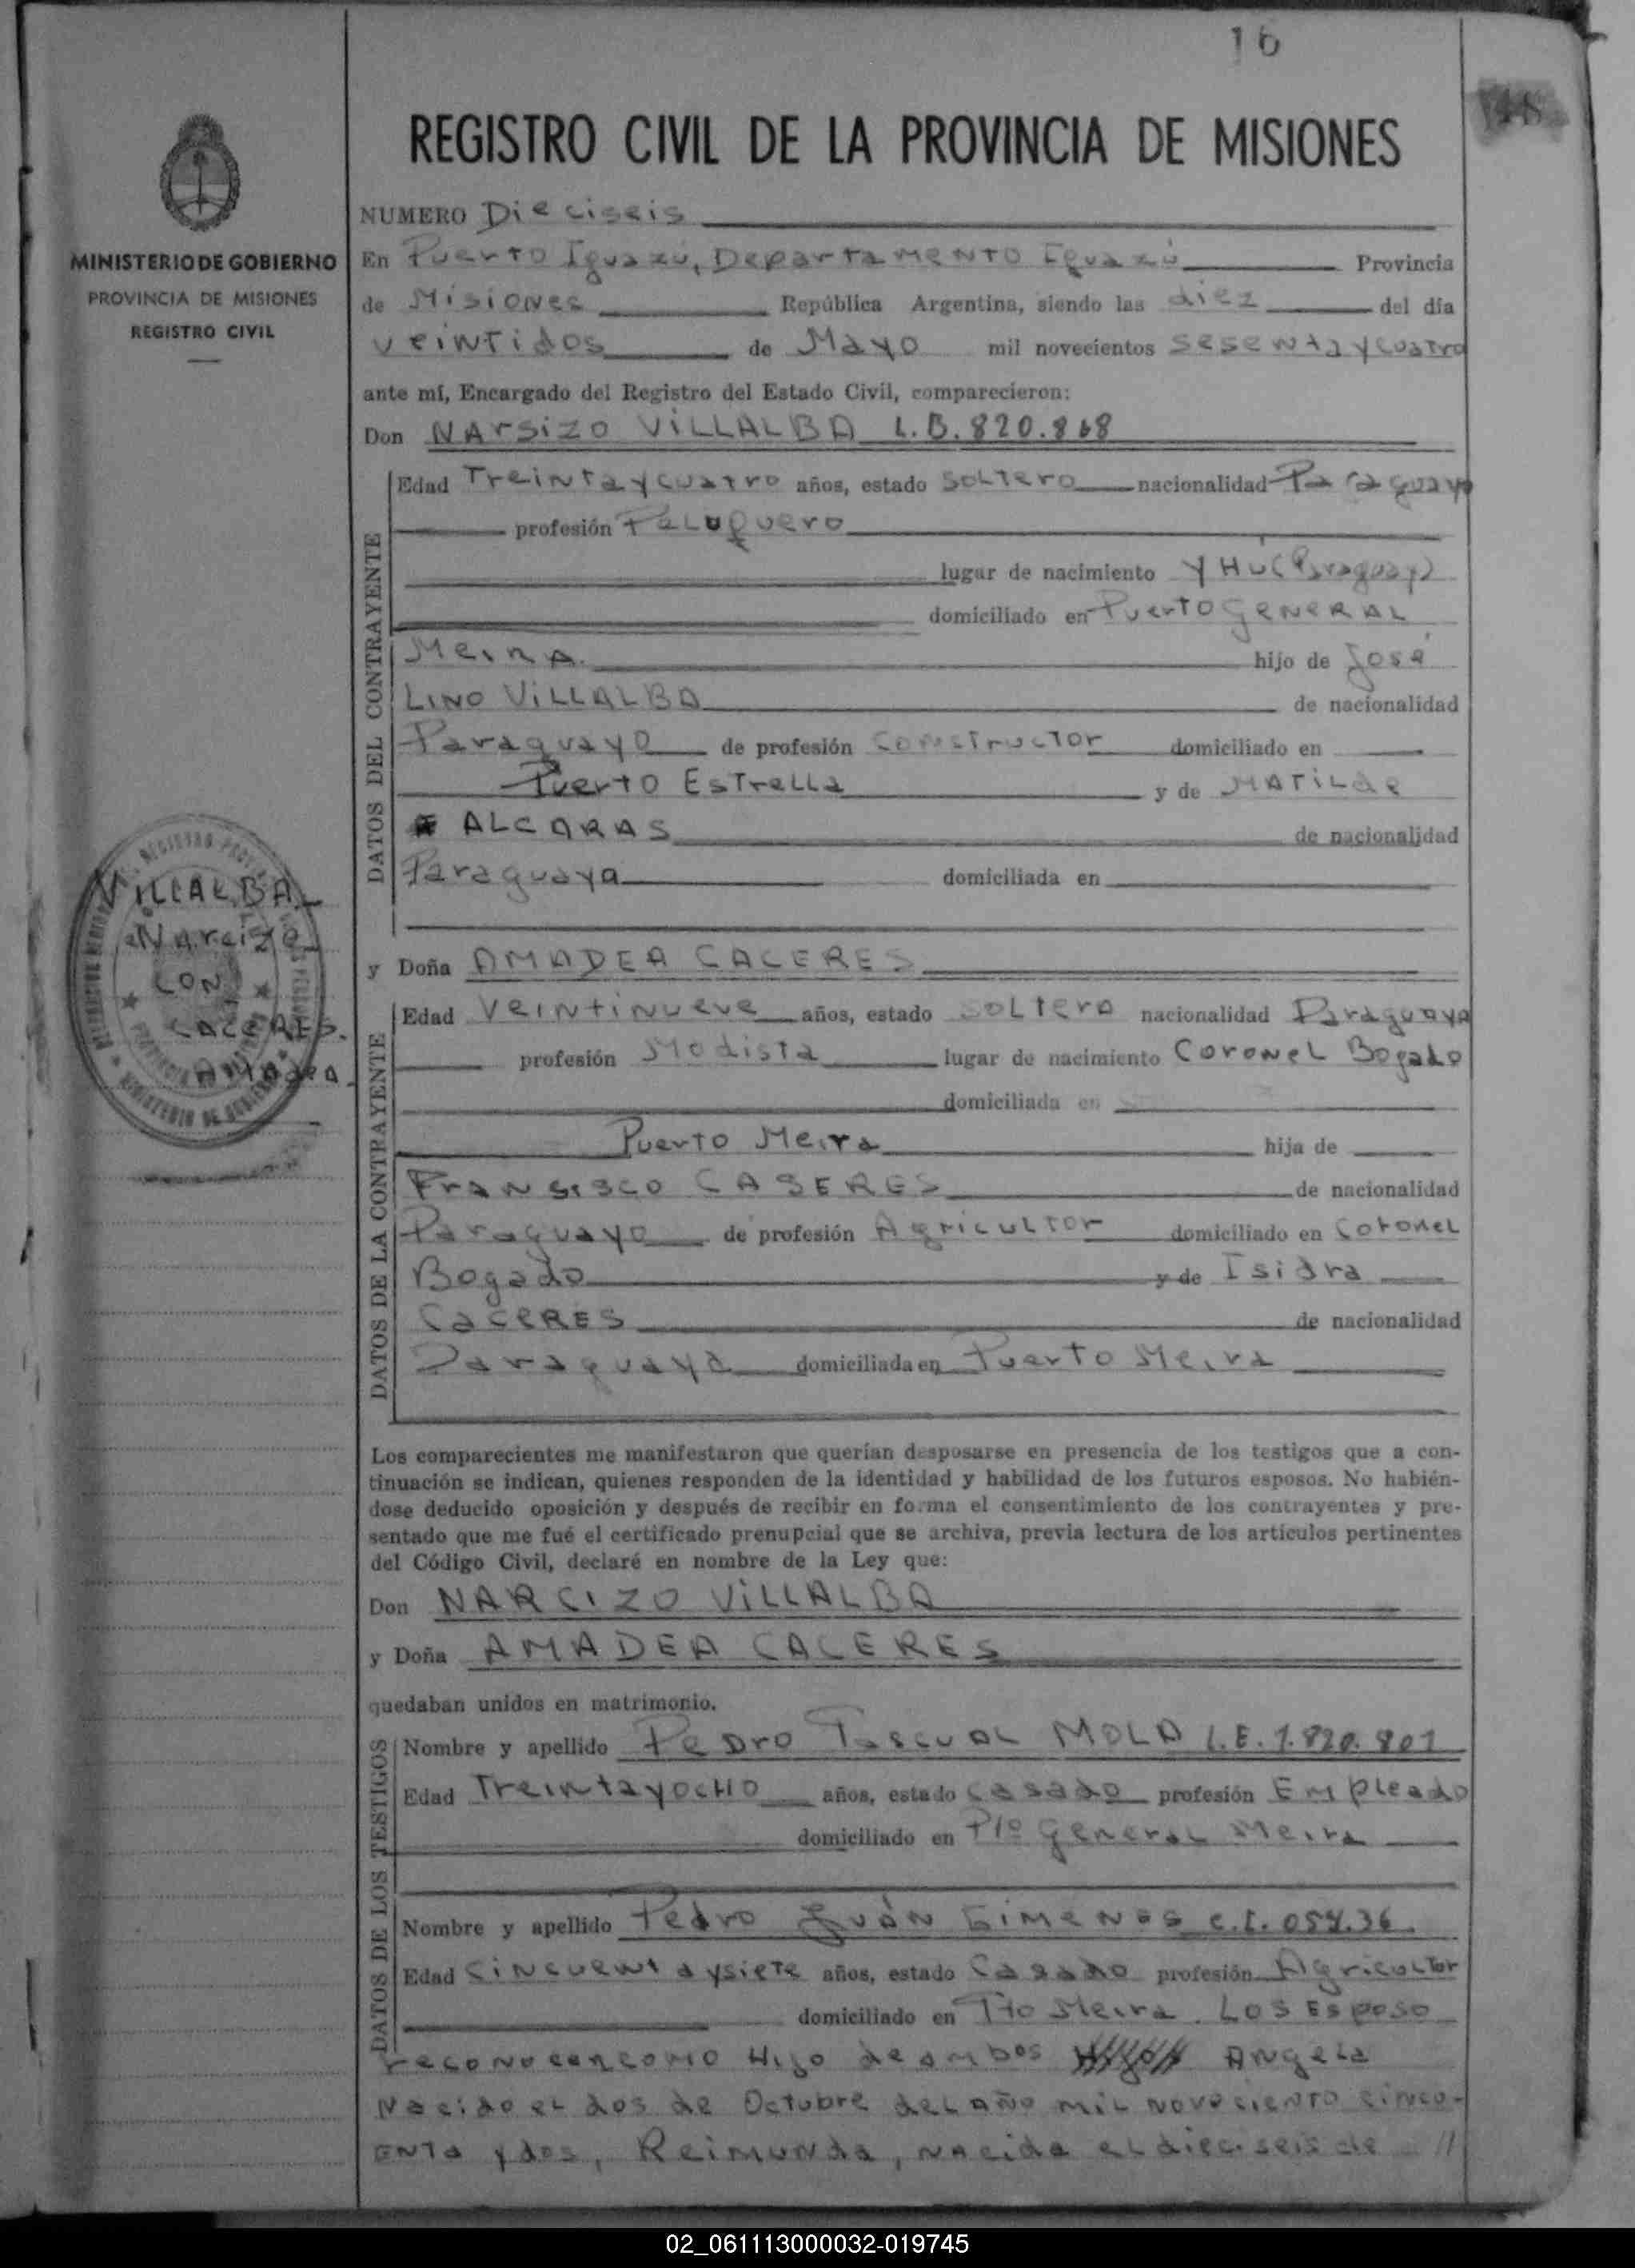 16
148
REGISTRO CIVIL DE LA PROVINCIA DE MISIONES
MINISTERIO DE GOBIERNO
PROVINCIA DE MISIONES
REGISTRO CIVIL
NUMERO Dieciseis
En Puerto Iguazú, Departamento Iguazú Provincia
de Misiones República Argentina, siendo las diez del día
veintidos de Mayo mil novecientos sesenta y cuatro
ante mí, Encargado del Registro del Estado Civil, comparecieron:
Don NARSIZO VILLALBA L.B. 820.868
DATOS DEL CONTRAYENTE
Edad Treinta y cuatro años, estado soltero nacionalidad Paraguayo
profesión Peluquero
lugar de nacimiento YHú (Paraguay)
domiciliado en Puerto GENERAL
MeirA. hijo de José
LINO VILLALBA de nacionalidad
Paraguayo de profesión Constructor domiciliado en
Puerto Estrella y de MATILde
ALCARAS de nacionalidad
Paraguaya domiciliada en
VILLALBA
Narcizo
CON
CACERES.
Amadea.
y Doña AMADEA CACERES
DATOS DE LA CONTRAYENTE
Edad Veintinueve años, estado soltera nacionalidad Paraguaya
profesión Modista lugar de nacimiento Coronel Bogado
domiciliada en
Puerto Meira hija de
Fransisco CASERES de nacionalidad
Paraguayo de profesión Agricultor domiciliado en Coronel
Bogado y de Isidra
CaceRES de nacionalidad
Paraguaya domiciliada en Puerto Meira
Los comparecientes me manifestaron que querían desposarse en presencia de los testigos que a con-
tinuación se indican, quienes responden de la identidad y habilidad de los futuros esposos. No habién-
dose deducido oposición y después de recibir en forma el consentimiento de los contrayentes y pre-
sentado que me fué el certificado prenupcial que se archiva, previa lectura de los artículos pertinentes
del Código Civil, declaré en nombre de la Ley que:
Don NARCIZO VILLALBA
y Doña AMADEA CACERES
quedaban unidos en matrimonio.
DATOS DE LOS TESTIGOS
Nombre y apellido Pedro Pascual MOLA L.E. 1.820.801
Edad Treinta y ocho años, estado casado profesión Empleado
domiciliado en Pto General Meira
Nombre y apellido Pedro Juán Gimenes C.I. 054.36.
Edad Cincuenta y siete años, estado Casado profesión Agricultor
domiciliado en Pto Meira. Los Esposo
reconocen como Hijo de ambos Angela
Nacido el dos de Octubre del año mil novesiento cincu-
enta y dos, Reimunda, nacida el dieciseis de //
02_061113000032-019745